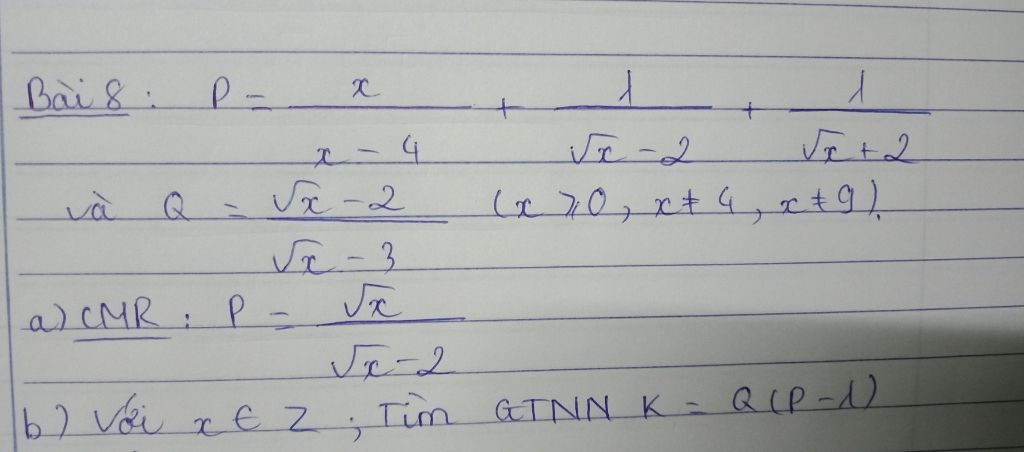 Bài 8 : P = x / (x - 4) + 1 / (√x - 2) + 1 / (√x + 2)
và Q = (√x - 2) / (√x - 3) (x ⩾ 0, x ≠ 4, x ≠ 9).
a) CMR : P = √x / (√x - 2)
b) Với x ∈ Z ; Tìm GTNN K = Q(P - 1)